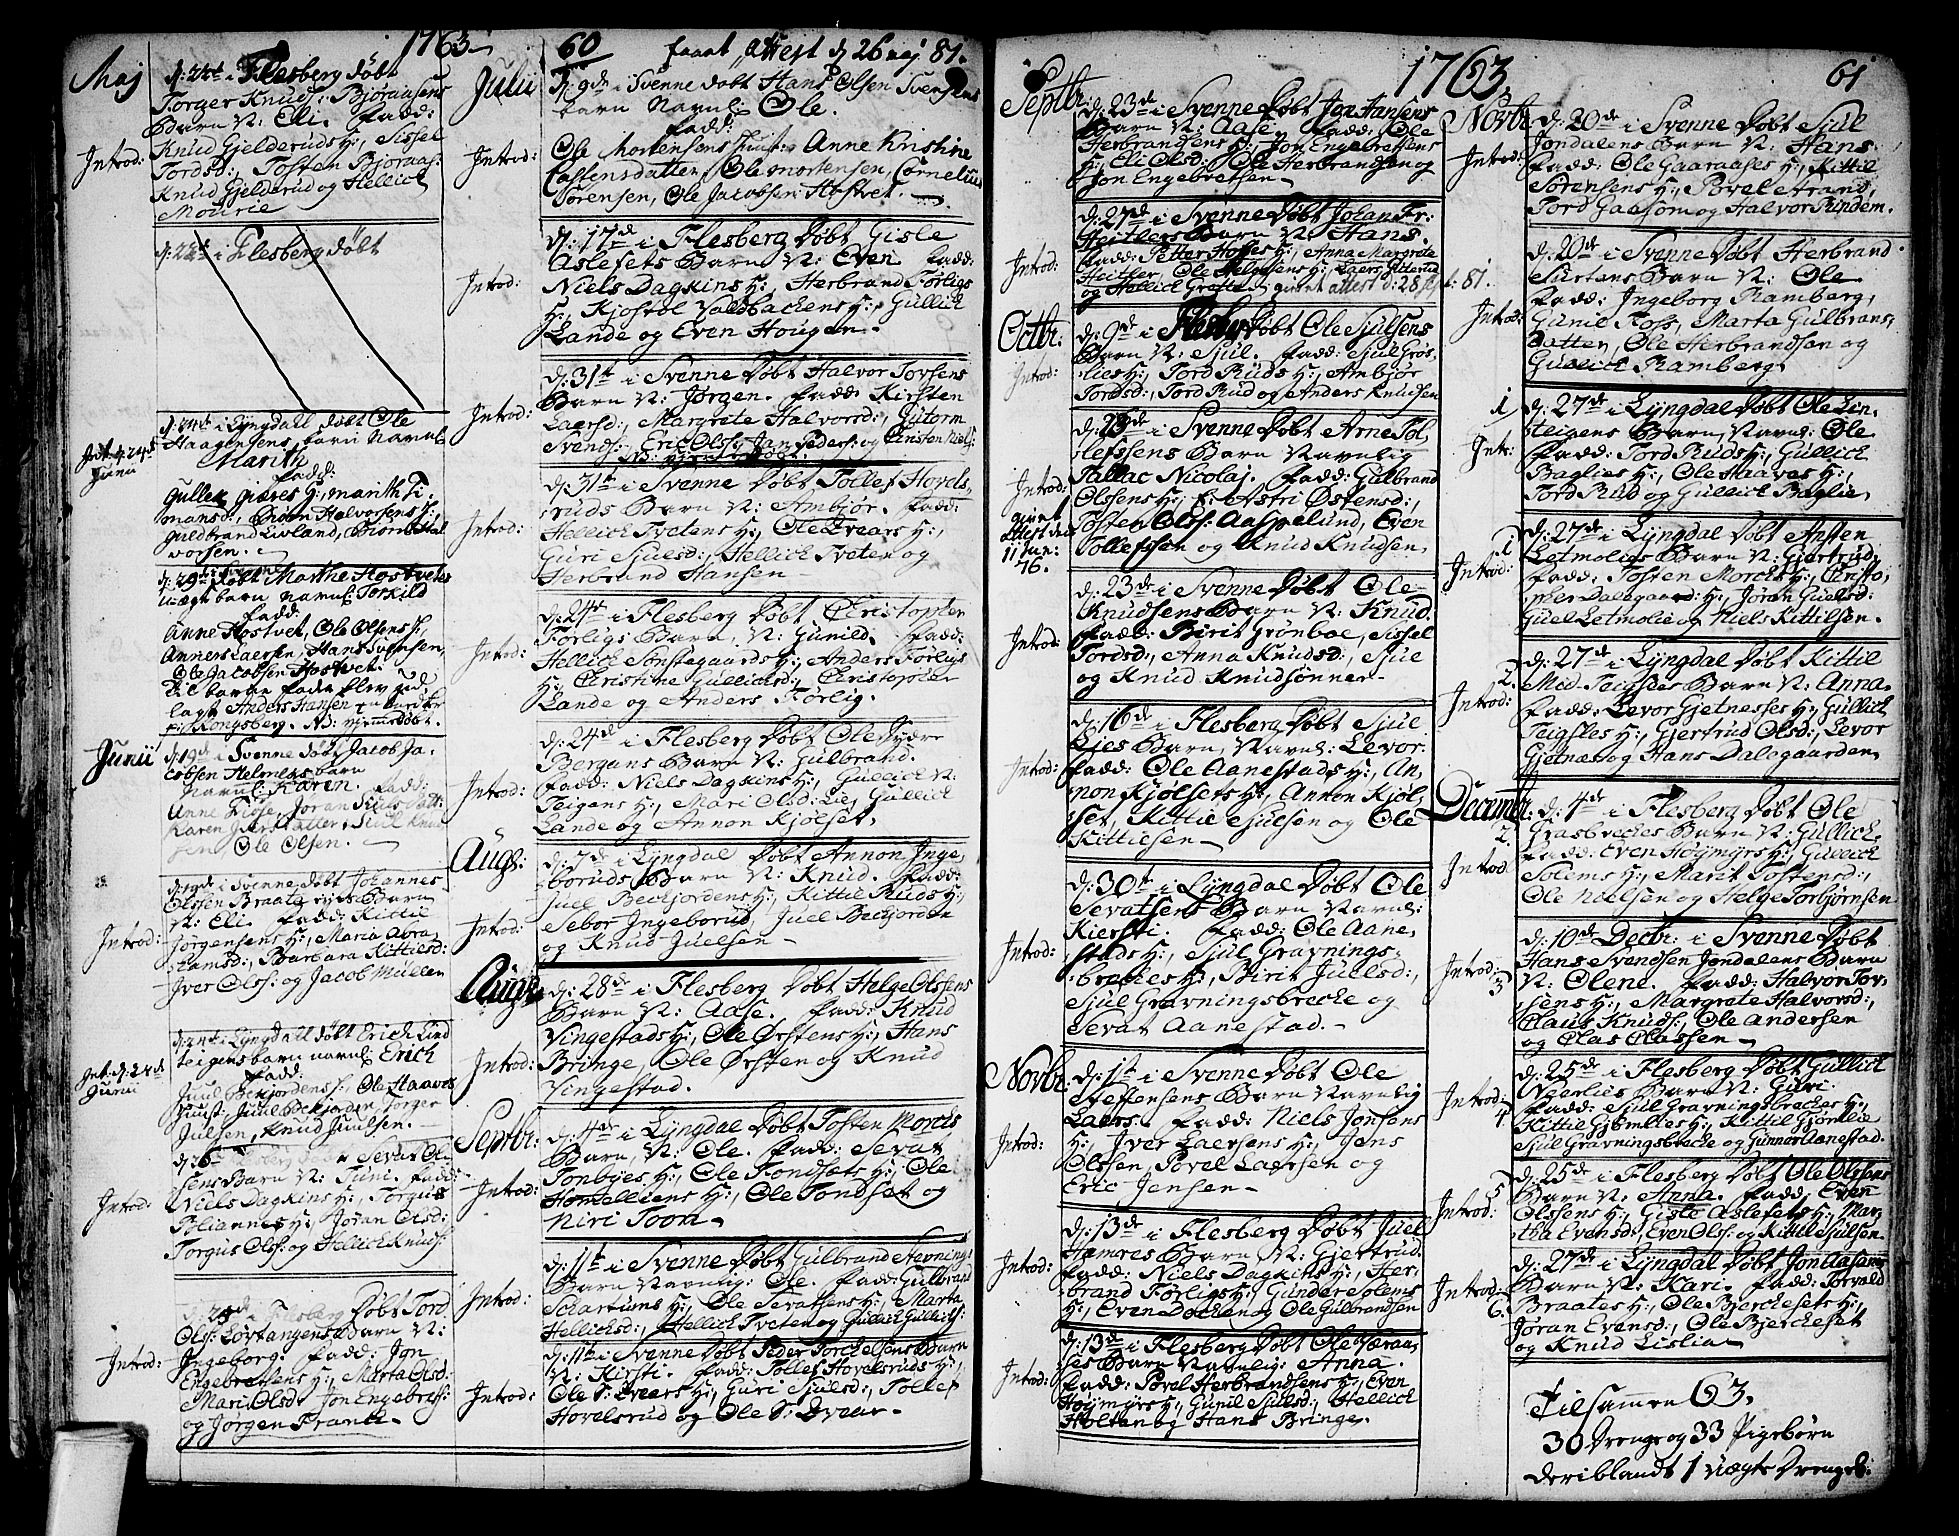 1763
60
faaet attest d 26 maj 81.
Maj
d: 22d i Flesberg døbt
Torger Knuds: Bjøraasens
Barn N: Eli. fadd:
Knud Gjelderuds H:, Sissel
Tordsd:, Tosten Bjøraas:
Knud Gjelderud og Hellich
Mourie
Introd:
d: 22d i Flesberg døbt
d: 24d i Lyngdall døbt Ole
Haagensens barn Navnl:
Marith
fadd:
Gullek Giæres H:, marith Ti-
mansd:, Biørn Halvorsens H:,
guldbrand Livland, Biørn Hal-
vorsen.
Junii
d: 29d døbt Marthe Hostvets
uægte barn Navnl: Torkild
fadd:
Anne Hostvet, Ole Olsens H:,
Anners Laersen, Hans Svensen,
Ole Jacobsen Hostvet.
til barne fader blev ud
lagt Anders Hansen
Kongsberg. NB: hjemmedøbt.
Junii
d: 19d i Svenne døbt Jacob Ja-
cobsen Helmens barn
Navnl: Karen. fadd:
Anne Fiose, Joran Niels Datt:
Karen Datter, Siul Knud
sen Ole Olsen.
d: 19de i Svenne døbt Johannes
Olssen Braaterijds Barn
N: Eli. fadd: Kittil
Jørgensens H:, Maria Abra-
hamsd:, Barbara Kittilsd:
Iver Olss: og Jacob Mullen
Introd:
d: 24d i Lyngdall døbt Erich Lind
teigens barn navnl: Erich
fadd:
Juul Bekjordens H:, Ole Haavas
Huust:, Juul Bekjorden, Torger
Julsen, Knud Juulsen.
Int: d: 24d
Junii
d: 6 Flesberg Døbt Sevat Ole-
sens Barn N: Tuni. fadd:
Niels Dagkins H:, Torgus
Boliannes H:, Jøran Olsd:
Torgus Olss: og Hellich Knuds:
Introd:
d: 29d i Flesberg Døbt Tord
Olss: Lørtangens Barn N:
Ingeborg. fadd: Jon
Engebretsens H:, Marta Olsd:
Mari Olsd: Jon Engebrets:
og Jørgen Franck.
Introd:
Julii
d: 9de i Svenne døbt Hans Olsen Svensens
barn Navnl: Ole.
fadd:
Ole Mortensens huust: Anne Kristine
Castensdatter, Ole mortensen, Cornelius
Sørensen, Ole Jacobsen Hostvet.
Introd:
d: 17d i Flesberg Døbt Gisle
Aslefets Barn N: Even fadd:
Niels Dagkins H:, Herbrand Førligs
H:, Kjøstøl Valdbackens H:, Gullich
Lande og Even Hougen.
Introd:
d: 31te i Svenne Døbt Halvor Torsens
Barn N: Jørgen. fadd: Kirsten
Laersd:, Margrete Halvorsd:, Gutorm
Svends:, Eric Olss:, Jan Peders: og Christen Niels:
NB: hjemmedøbt.
Introd:
d: 31te i Svenne Døbt Tollef Hovels-
ruds Barn N: Ambjør. fadd:
Hellich Tvetens H:, Ole Evears H:,
Guri Siulsd:, Hellich Tveten og
Herbrand Hansen
Introd:
d: 24d i Flesberg Døbt Christopher
Førligs Barn, N: Gunild. fadd:
Hellich Sønstegaards H:, Anders Førligs
H:, Christine Gullichsd:, Christopher
Lande og Anders Førlig.
Introd:
d: 24d i Flesberg Døbt Ole Nydre
Bergans Barn N: Gulbrand.
fadd: Niels Dagkins H:, Gullich N:
Teigens H:, Mari Olsd: Lie, Gullich
Lande og Annon Kjølset.
Introd:
Augs:
d: 7d i Lyngdal Døbt Annon Inge-
boruds Barn N: Knud. fadd:
Juel Beckjordens H:, Kittil Ruds H:,
Sebor Ingeborud, Juel Beckjorden
og Knud Juelsen
Introd:
Augs:
d: 28de i Flesberg Døbt Helge Olssens
Barn N: Aase. fadd: Knud
Vingestads H:, Ole Ørstens H:, Hans
Bringe, Ole Ørsten og Knud
Vingestad.
Introd:
Septbr:
d: 4de i Lyngdal Døbt Tosten Morchs
Barn, N: Ole. fadd: Sevat
Tonbyes H:, Ole Tondsets H:, Ole
Homteliens H:, Ole Tondset og
Niri Toom.
Introd:
d: 11te i Svenne Døbt Gulbrand Stevnings
Barn Navnlig: Ole. fadd: Gulbrand
Schartums H:, Ole Sevatsens H:, Marta
Hellichsd:, Hellich Tveten og Gullich Gullichs:
Introd:
d: 11te i Svenne Døbt Peder Torchelsens Barn
N: Kirsti. fadd: Tollef Hovelsruds H:,
Ole S: Evears H:, Guri Siulsd:, Tollef
Hovelsrud og Ole S: Evear.
Introd:
1763
61
Septbr:
d: 23d i Svenne Døbt Jon Jansens
Barn N: Aase. fadd: Ole
Herbrandsens H:, Jon Engebretsens
H:, Eli Olsd:, Ole Herbrandsen og
Jon Engebretsen
d: 27de i Svenne Døbt Johan Fr:
Heitlers Barn N: Hans.
fadd: Petter Hoffes H:, Anna Margrete
Heitler, Ole Helgesens H:, Laers Atterud
og Hellich Grøsten, givet attest d: 28 sept: 81.
Introd:
Octbr.
d: 9de i Flesberg Døbt Ole Siulsens
Barn N: Sjul. fadd: Sjul Grøs-
lies H:, Tord Ruds H:, Ambjør
Tordsd:, Tord Rud og Anders Knudsen
Introd:
d: 23de i Svenne Døbt Arne Tol-
lefssens Barn Navnlig
Tallac Nicolaj. fadd: Gulbrand
Olssens H:, Astri Østensd:,
Tosten Olss: Aaspelund, Even
Tollefsen og Knud Knudsen.
Introd:
givet
attest den
11 Jan:
76.
d: 23de i Svenne Døbt Ole
Knudsens Barn N: Knud.
fadd: Birit Grønboe, Sissel
Tordsd:, Anna Knudsd:, Sjul
og Knud Knudsønner
Introd:
d: 16de i Flesberg Døbt Sjul
Lies Barn, Navnl: Levor
fadd: Ole Aanestads H:, An-
non Kjølsets H:, Annon Kjøl-
set, Kittil Sjulsen og Ole
Kittilsen.
Introd:
d: 30te i Lyngdal Døbt Ole
Sevatsens Barn Navnl:
Kiersti. fadd: Ole Aane-
stads H:, Sjul Gravnings-
breckes H:, Birit Juelsd:,
Sjul Gravningsbrecke og
Sevat Aanestad.
Introd:
Novbr:
d: 1te i Svenne Døbt Ole
Steffensens Barn Navnlig
Laers. fadd: Niels Jonsens
H:, Iver Laersens H:, Jens
Olssen, Povel Laersen og
Eric Jensen
Introd:
d: 13de i Flesberg Døbt Juel
Hamres Barn N: Gjertrud.
fadd: Niels Dagkins H:, Her-
brand Førligs H:, Gunder Solems
H:, Even Docken og Ole Gulbrandsen
Introd:
d: 13de i Flesberg Døbt Ole Veraas-
ses Barn Navnlig: Anna.
fadd: Povel Herbrandsens H:, Even
Høymyrs H:, Gunil Siulsd:, Hellich
Holtan og Hans Bringe.
Introd:
Novbr
d: 20de i Svenne Døbt Sjul
Jøndalens Barn N: Hans.
fadd: Ole Gaaraases H:, Kittil
Sørensens H:, Povel Strand,
Tord Gaasom og Halvor Rindem.
Introd:
d: 20de i Svenne Døbt Herbrand
Surtens Barn N: Ole
fadd: Ingeborg Ramberg,
Gunil Foss, Marta Gulbrans-
Datter, Ole Herbrandsen og
Gullich Ramberg.
Introd:
1
d: 27de i Lyngdal Døbt Ole Lin-
teigens Barn, Navnl: Ole
fadd: Tord Ruds H:, Gullich
Baglies H:, Ole Haavas H:,
Tord Rud og Gullich Baglie
Intr:
1
d: 27de i Lyngdal Døbt Austen
Letmolies Barn N: Gjertrud,
fadd: Tosten Morchs H:, Christo-
pher Dalsgaards H:, Jøran Guelsd:
Guel Letmolie og Niels Kittilsen.
Introd:
2.
d: 27de i Lyngdal Døbt Kittil
Mid-Teigses Barn N: Anna.
fadd: Levor Gjetnesses H:, Gullich
Teigsles H:, Gjertrud Olsd:, Levor
Gjetnes og Hans Dalsgaarden
Introd:
Decembr:
2.
d: 4de i Flesberg Døbt Ole
Grasbreckes Barn N: Gullich.
fadd: Even Høymyrs H:, Gullich
Solems H:, Marit Tostensd:,
Ole Nielsen og Helge Torbjørnsen
Introd
d: 10de Decbr: i Svenne Døbt
Hans Svendsen Jøndalens Barn
N: Olene. fadd: Halvor Tor-
sens H:, Margrete Halvorsd:,
Claus Knuds:, Ole Andersen
og Clas Classen
Introd:
3
d: 25de i Flesberg Døbt Gullich
Nærlies Barn N: Guri.
fadd: Sjul Gravningsbreckes H:,
Kittil Gjømlies H:, Kittil Gjømlie
Sjul Gravningsbrecke og Gunnar Aanestad.
Introd:
4
d: 25de i Flesberg Døbt Ole Olssens
Barn N: Anna. fadd: Even
Olssens H:, Gisle Aslefets H:, Mar-
tha Evensd:, Even Olss: og Kittil Sjulsen.
Introd:
5
d: 27de i Lyngdal Døbt Jon Aasans
Barn N: Kari. fadd: Torvald
Braates H:, Ole Bjerchesets H:,
Jøran Evensd:, Ole Bjercheset
og Knud Lislia
Introd:
6.
Tilsamen 63.
30 Drenge og 33 Pigebørn
deriblandt 1 uægte Drengeb: